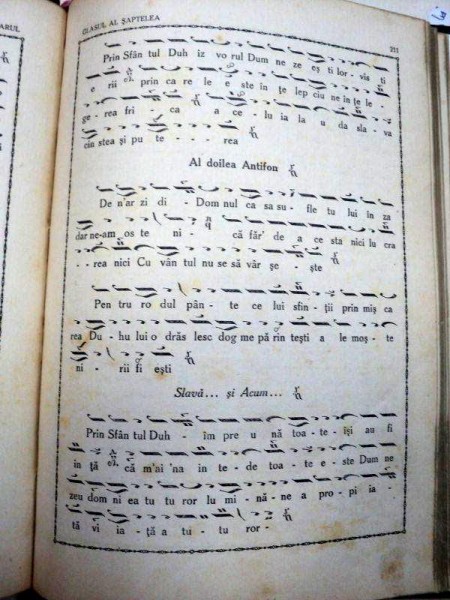 ARUL
GLASUL AL ŞAPTELEA
211
Prin Sfân tul Duh iz vo rul Dum ne ze eş ti lor - vis ti
e rii prin ca re le e ste în ţe lep ciu ne în ţe le -
ge-rea fri - ca a ce-lu ia la u da sla-va
cin stea şi pu te - - - rea
Al doilea Antifon
De n'ar zi di - Dom nul ca sa su - fle tu lui în za
dar ne-am os te ni - că făr' de a ce sta nici lu cra
- rea nici Cu vân tul nu se să vâr şe - şte
Pen tru ro dul pân - te ce lui sfin - ţii prin miş ca
rea Du - hu lui o drăs lesc dog me pă rin teşti a le moş - te
ni - rii fi eşti
Slavă... şi Acum...
Prin Sfân tul Duh - îm pre u nă toa - te - îşi au fi
in ţă că m'ai 'na in te - de toa - te e - ste Dum ne
zeu dom ni ea tu tu ror lu mi - nă - ne a pro - pi ia -
tă vi ia - ţă a tu - tu ror-